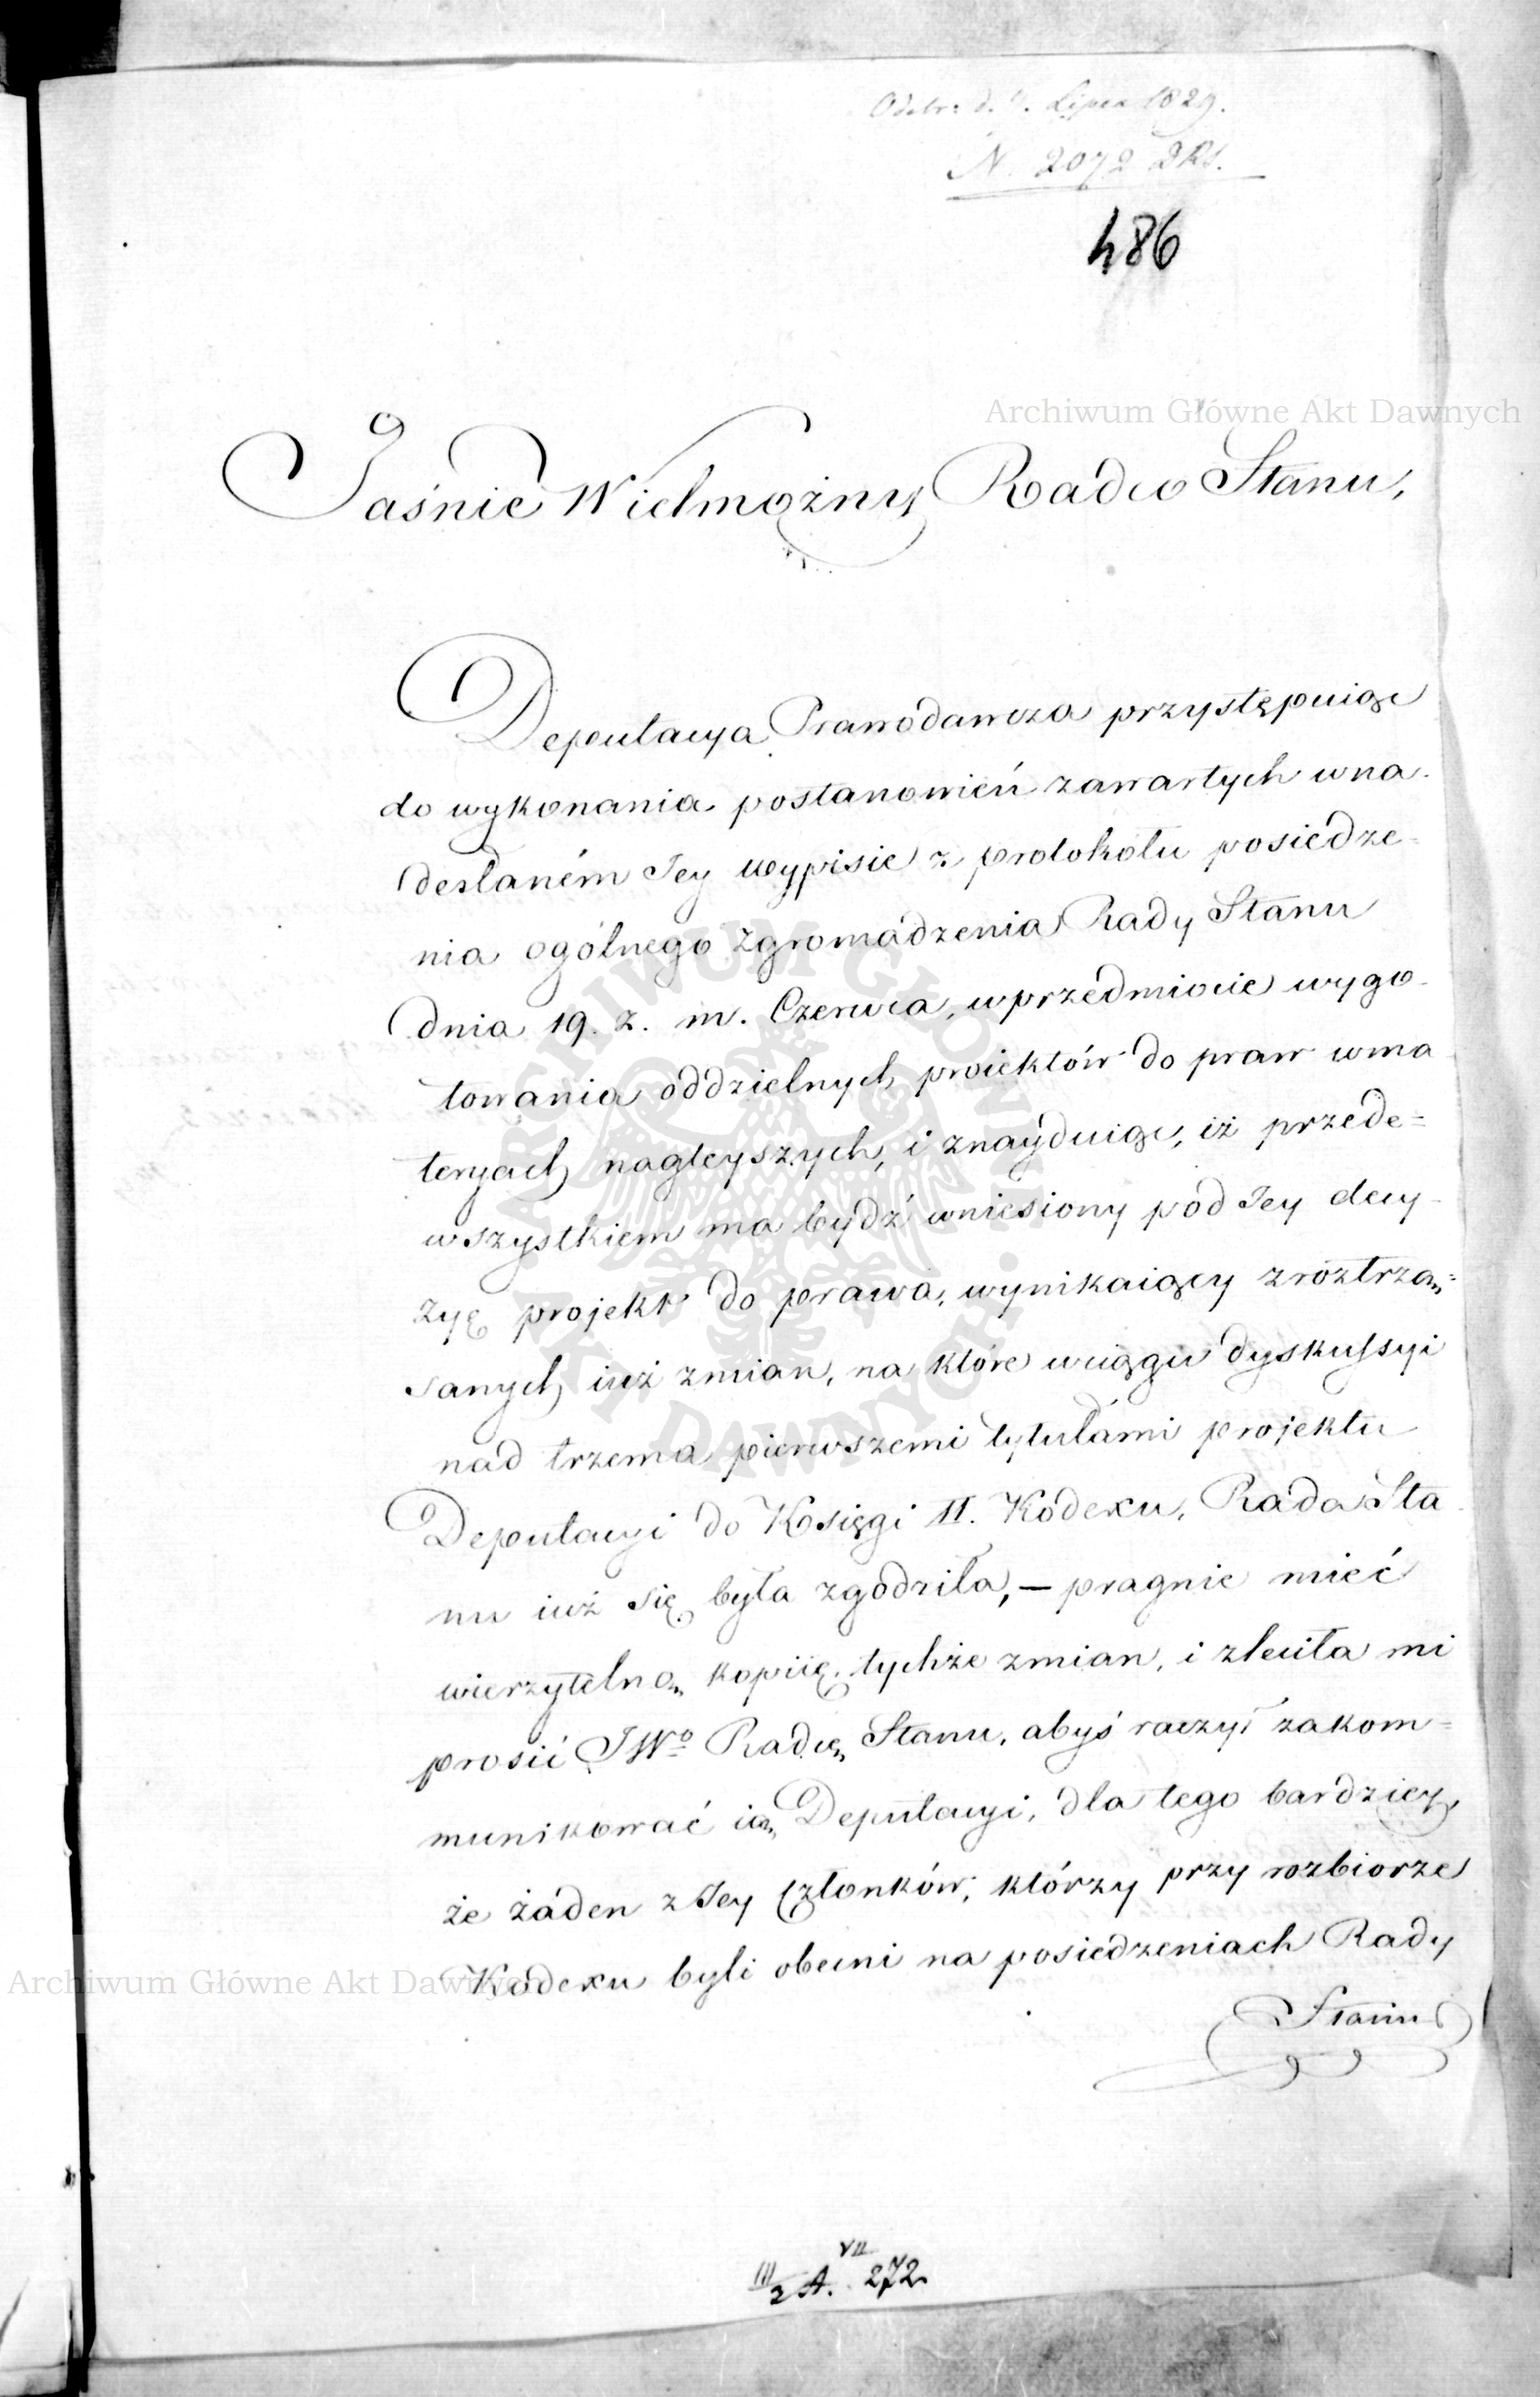 Odebr: d. Lipca 1829.
N. 2072 DRS.
486
Archiwum Główne Akt Dawnych
Jaśnie Wielmożny Radco Stanu,
Deputacya Prawodawcza przystępuiąc
do wykonania postanowień zawartych w na-
desłaném Jey wypisie z protokołu posiedze-
nia ogólnego zgromadzenia Rady Stanu
dnia 19. z. m. Czerwca, w przedmiocie wygo-
towania oddzielnych proiektów do praw w ma-
teryach nagleyszych, i znayduiąc, iż przede=
wszystkiem ma bydź wniesiony pod Jey decy-
zyę projekt do prawa, wynikaiący z roztrzą=
sanych iuż zmian, na które w ciągu dyskussyi
nad trzema pierwszemi tytułami projektu
Deputacyi do Księgi II. Kodexu, Rada Sta-
nu iuż się była zgodziła, — pragnie mieć
wierzytelną kopiię tychże zmian, i zleciła mi
prosić JWº Radcę Stanu, abyś raczył zakom=
munikować ią Deputacyi, dla tego bardziey,
że żaden z Jey Członków, którzy przy rozbiorze
Kodexu byli obecni na posiedzeniach Rady
Archiwum Główne Akt Dawnych
Stanu
VII
III/2 A. 272
ARCHIWUM GŁÓWNE AKT DAWNYCH